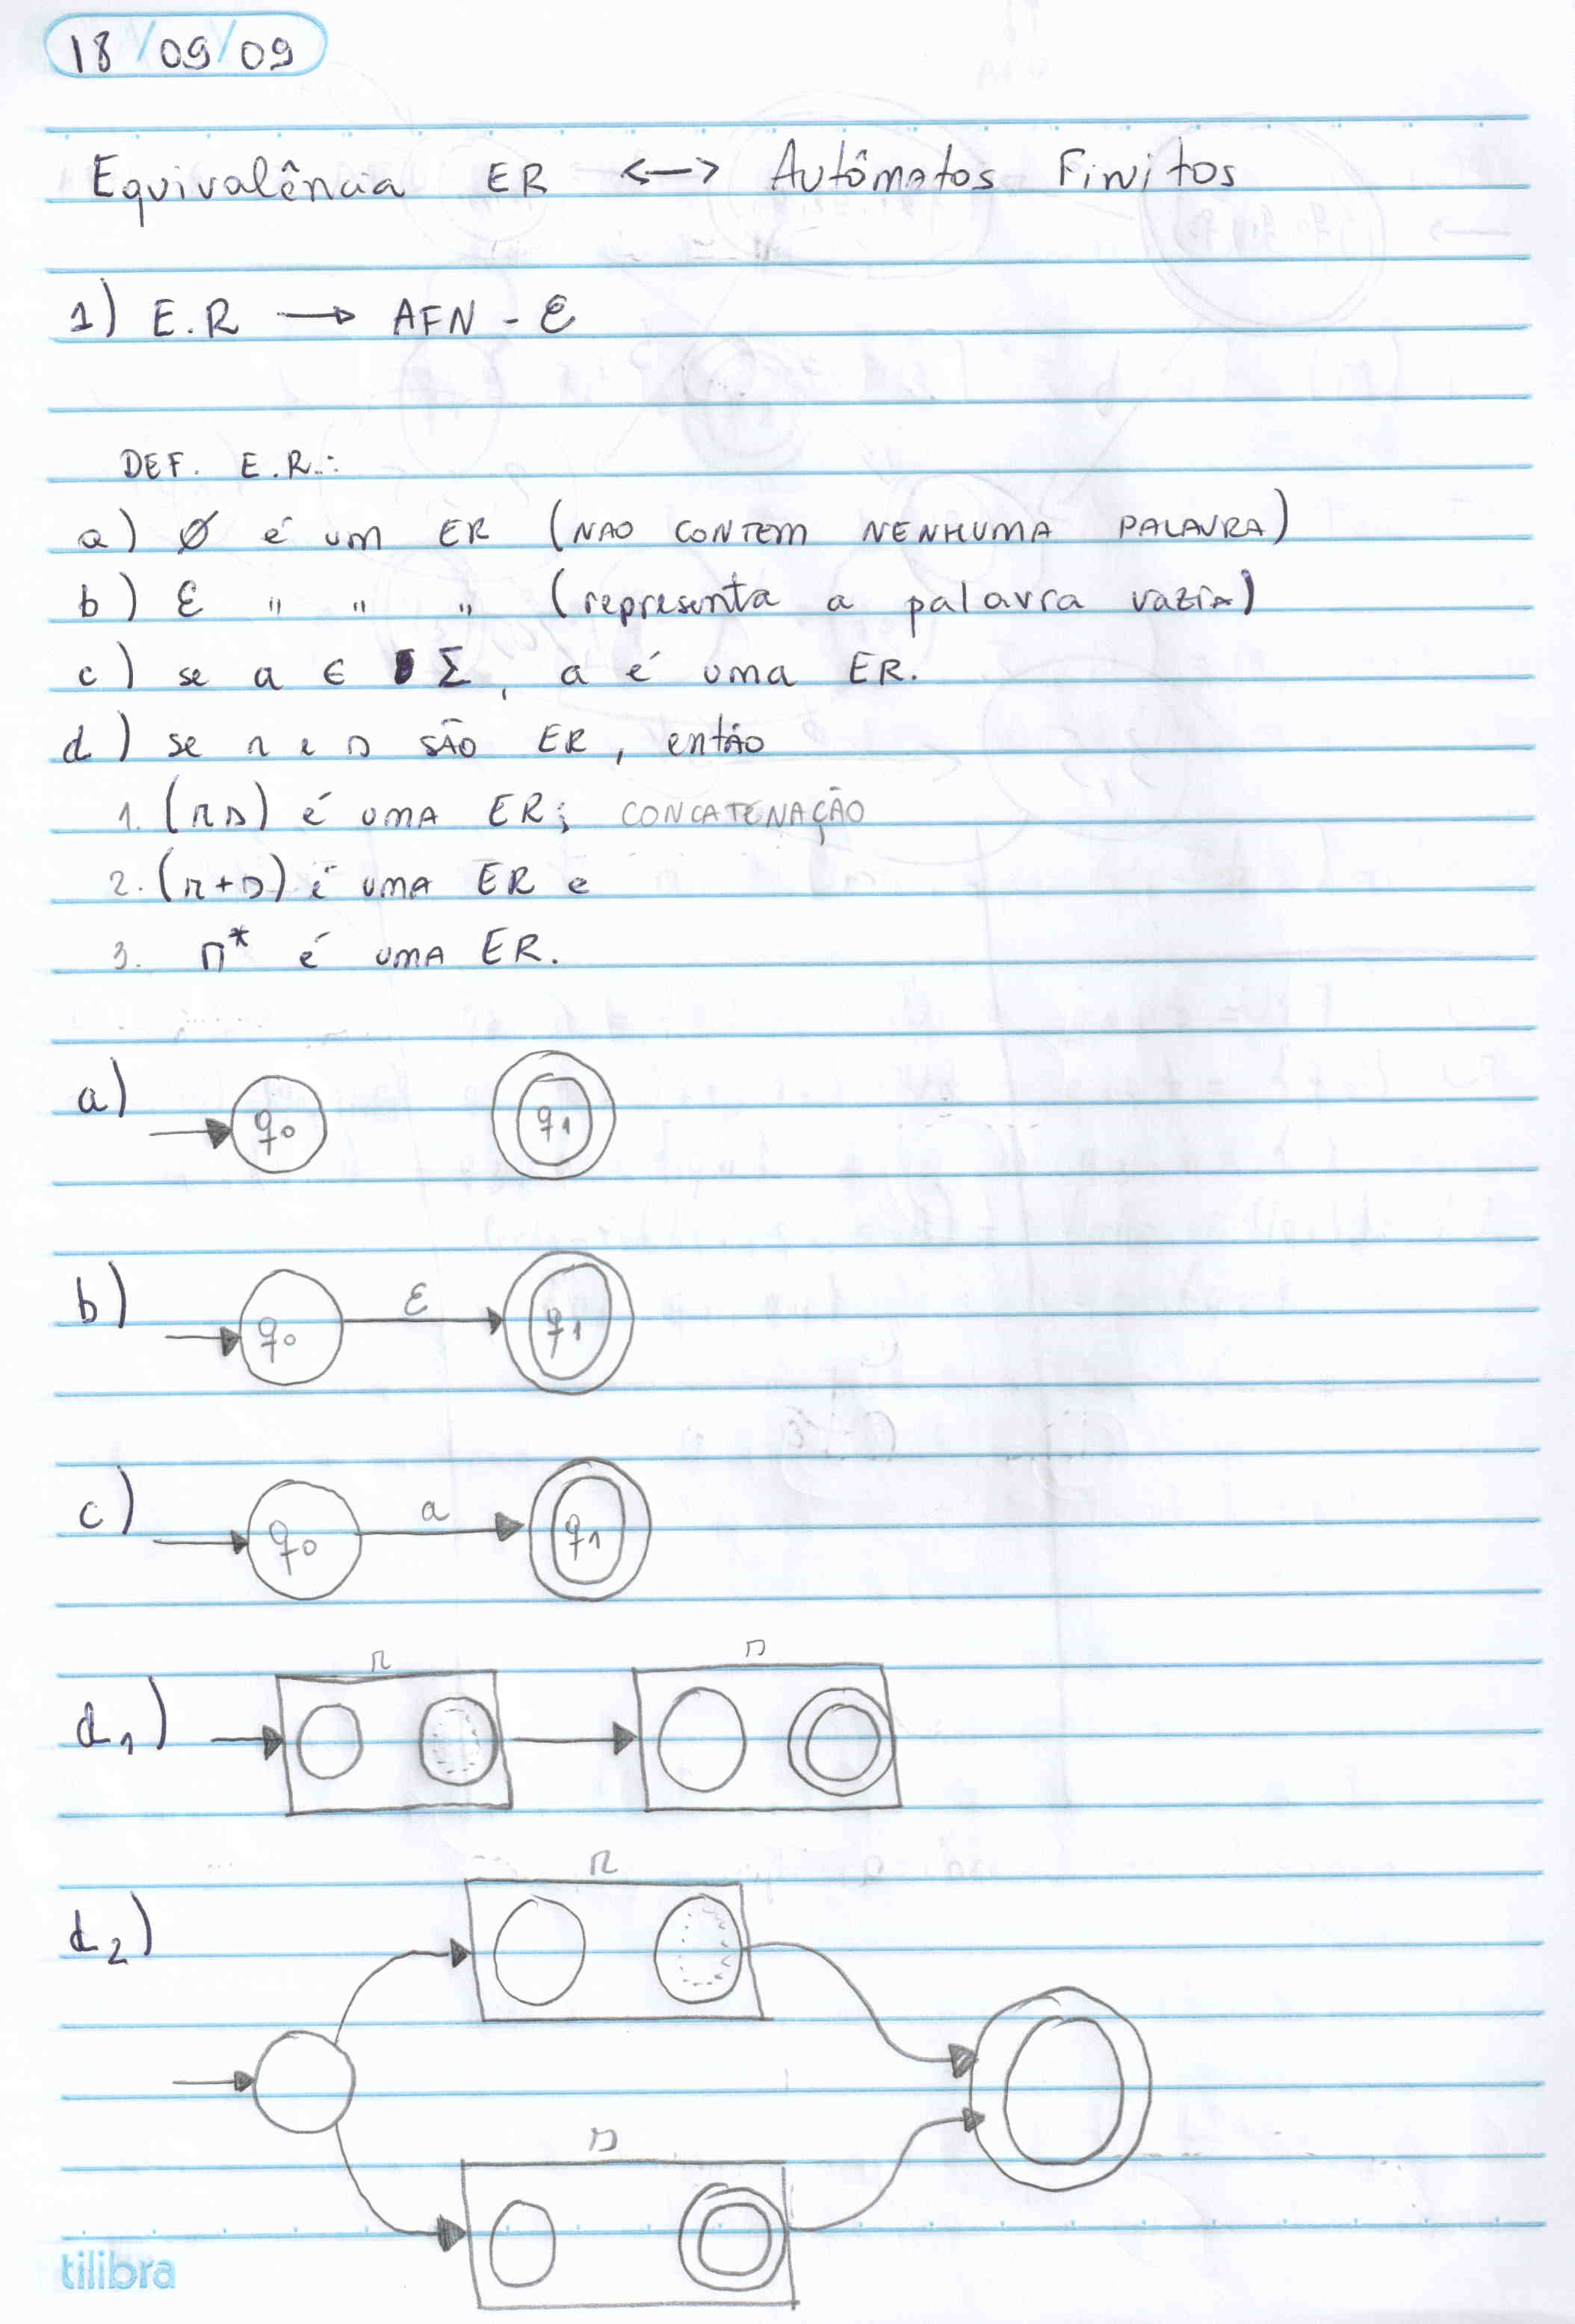 18/09/09
Equivalência ER <-> Autômatos Finitos
1) E.R → AFN - ε
DEF. E.R.:
a) Ø é um ER (NAO CONTEM NENHUMA PALAVRA)
b) ε " " " (representa a palavra vazia)
c) se a ∈ Σ, a é uma ER.
d) se r e s SÃO ER, então
1. (rs) é UMA ER; CONCATENAÇÃO
2. (r+s) é UMA ER e
3. r* é UMA ER.
a) q0 q1
b) q0 ε q1
c) q0 a q1
r s
d1)
r
d2)
s
tilibra